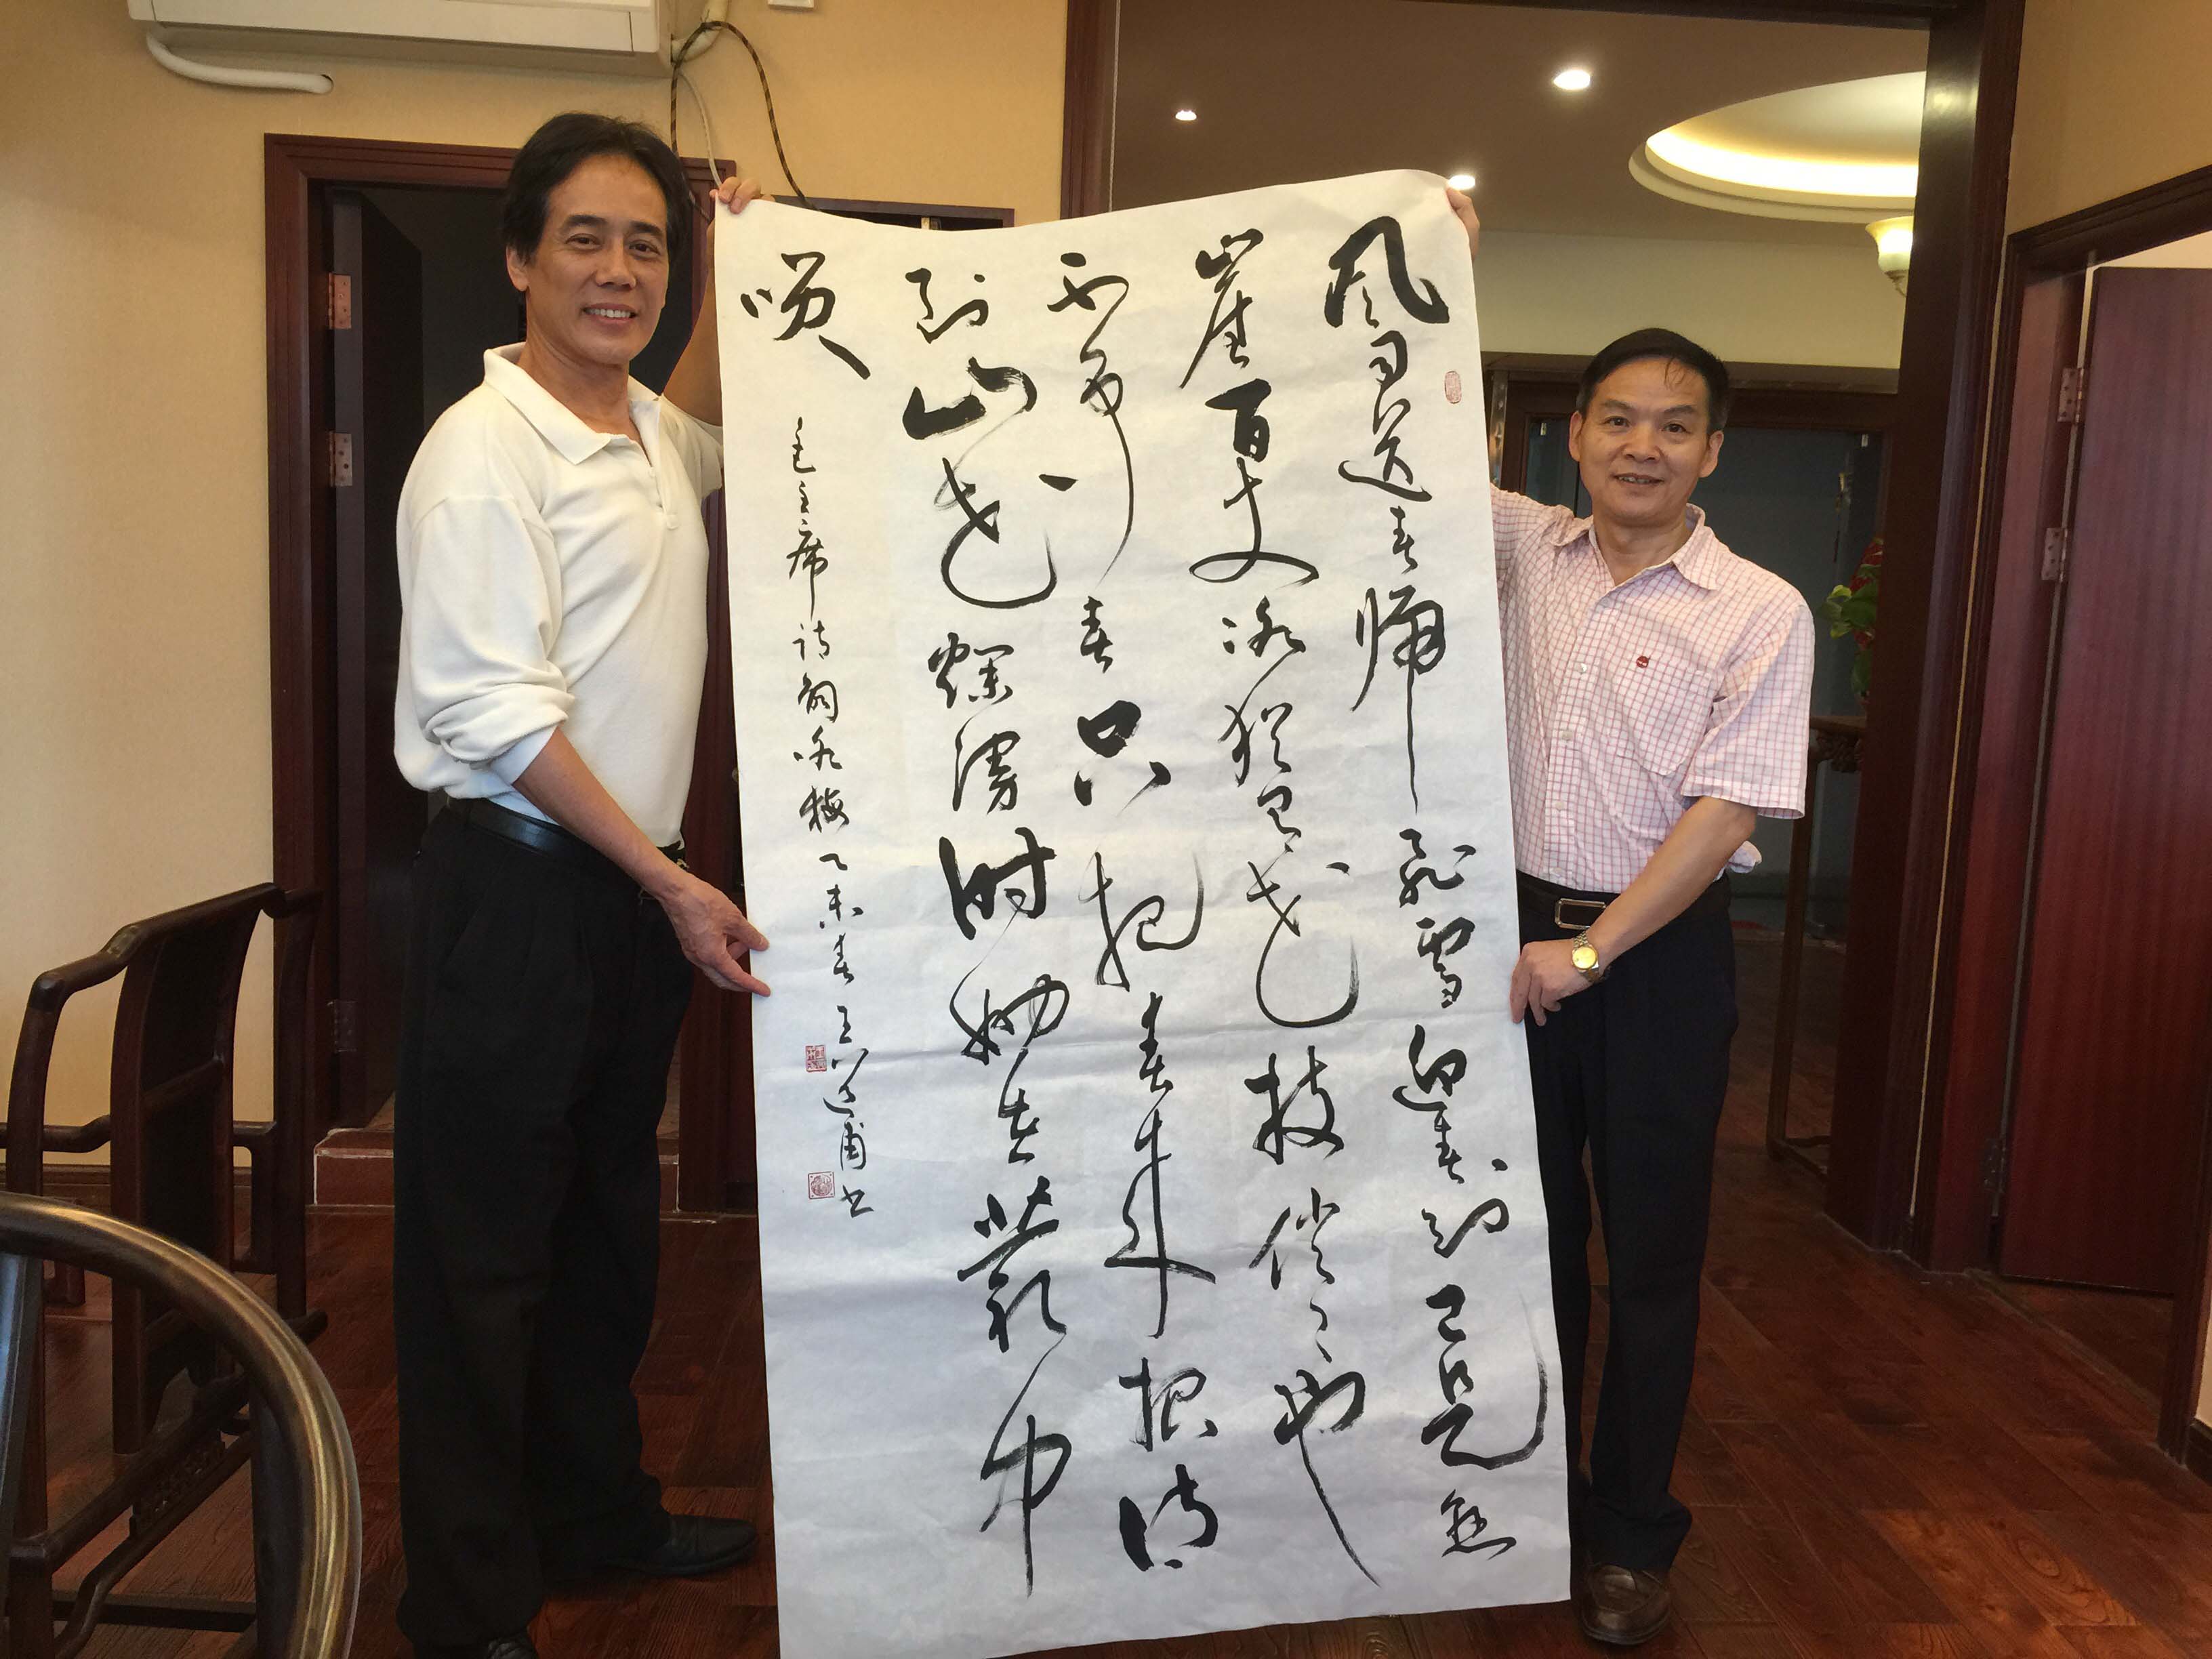 风雨送春归飞雪迎春到已是悬
崖百丈冰犹有花枝俏俏也
不争春只把春来报待
到山花烂漫时她在丛中
笑
毛主席诗词咏梅乙未春王道甫书